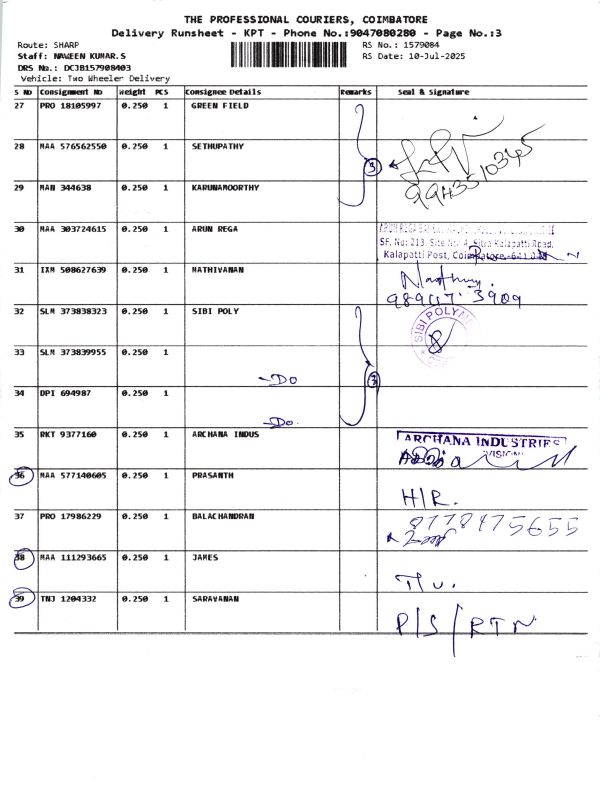 THE PROFESSIONAL COURIERS, COIMBATORE
Delivery Runsheet - KPT - Phone No.:9047080280 - Page No.:3
Route: SHARP
RS No.: 1579084
Staff: NAVEEN KUMAR.S
RS Date: 10-Jul-2025
DRS No.: DCJB157908403
Vehicle: Two Wheeler Delivery
S NO Consignment NO Weight PCS Consignee Details Remarks Seal & Signature
27 PRO 18105997 0.250 1 GREEN FIELD
28 MAA 576562550 0.250 1 SETHUPATHY
3
9943510345
29 MAN 344638 0.250 1 KARUNAMOORTHY
30 MAA 303724615 0.250 1 ARUN REGA
SF. No: 213, Site No: 4, Sitra Kalapatti Road,
Kalapatti Post, Coimbatore-641
31 IXM 508627639 0.250 1 MATHIVANAN
32 SLM 373838323 0.250 1 SIBI POLY
SIBI POLY
33 SLM 373839955 0.250 1
-Do
3
34 DPI 694987 0.250 1
-Do.
35 RKT 9377160 0.250 1 ARCHANA INDUS
ARCHANA INDUSTRIES
36 MAA 577140605 0.250 1 PRASANTH
H/R.
37 PRO 17986229 0.250 1 BALACHANDRAN
8778475655
38 MAA 111293665 0.250 1 JAMES
39 TNJ 1204332 0.250 1 SARAVANAN
P/S/RTN